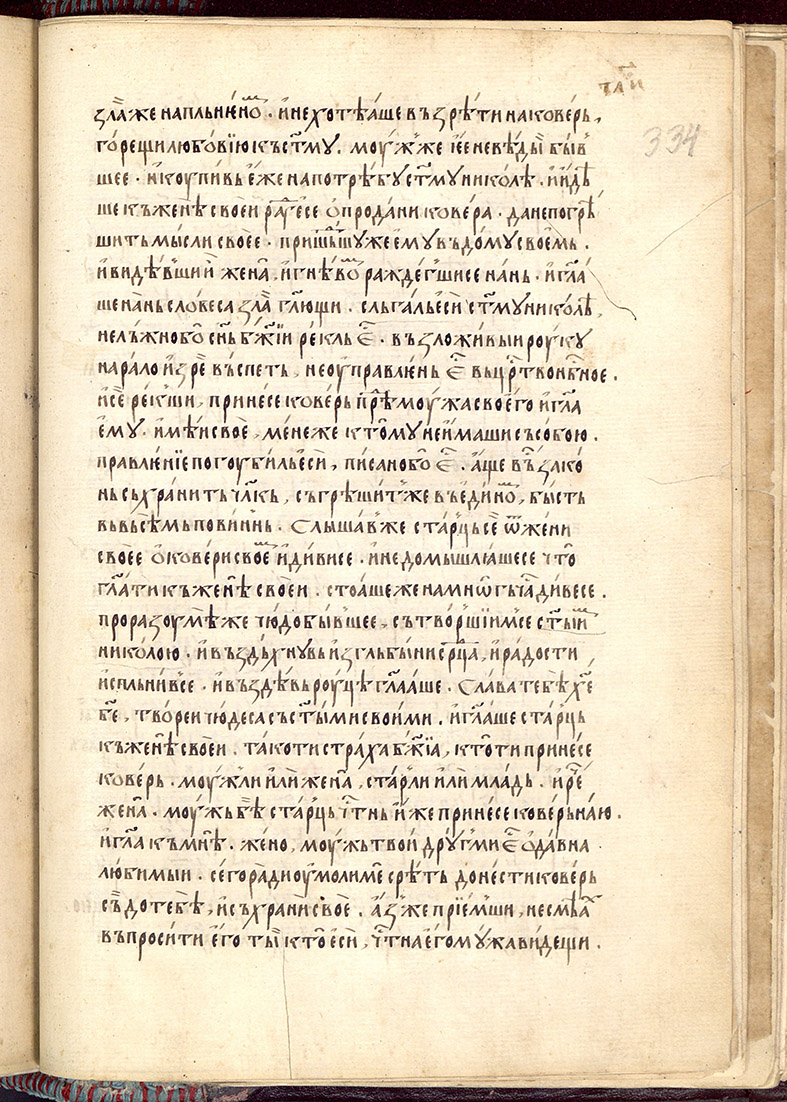 тл҃и
334
зла́ же напльнѥ́но . и҆ не хотѣа́ше въꙁрѣти на ковѣрь,
го́рещи любо́вїю къ ст҃му . моу́жꙋ же і҆ее невѣды̀ бы́в
шее . и҆ коупи́вь є҆́же на потрѣ́бу ст҃му нико́лѣ . и҆ и҆дѣ́
ше къ женѣ̀ своеѝ ра́дуесе ѻ҆ прода́ни ко́вера . да не погрѣ
ши́ть мы́сли своѐе . прише́дшу же є҆му въ до́му своѐмь .
и҆ ви́дѣвши и҆̀ жена̀ , и҆ гнѣ́вѡ раждѐгшисе на́нь . и҆ гл҃а
ше на́нь словеса̀ ꙁла̀ гл҃ющи . сльга́ль є҆сѝ ст҃му нико́лѣ,
не лъ́жно бо̀ сн҃ь бж҃їи ре́кль є҆с̑ . въꙁложи́выи роу́ку
на ра́ло и҆ ꙁре̑ въспе́ть , не оу҆пра́влѥнь є҆с̑ вь цр҃тво нб҃ное .
и҆ сѐ ре́кши , прине́се кове́рь прѣ̑ мо́ужа своѐго и҆ гл҃а
є҆му . и҆мѣ́и своѐ , ме́не же к томꙋ не и҆́маши съ собо́ю .
пра́влѥнїе погоуби́ль є҆сѝ , пи́сано бо̀ є҆с̑ . а҆́ще вь̀ ꙁако
нь съхрани́ть чл҃кь , съгрѣши́т же въ є҆ди́но , бы́сть
вь вьсѐмь пови́ннь . Слыша́в же ста́рць сѐ ѿ жени
своѐе ѻ҆ кове́ри своѐ и҆ ди́висе . и҆ не домышлꙗ́шесе что̀
гл҃ати къ женѣ̀ своеѝ . стоа́ше же на мнѡ́гы ча̑ ди́весе .
про́раꙁоумѣ́ же чю́до бы́вшее , сътво́ршїимсе ст҃ы́и
нико́лою . и҆ въꙁдъ́хнувь иꙁ глъбы́ни ср҃ца , и҆ ра́дости
и҆спльни́все . и҆ въꙁдѣ́вь роу́цѣ гл҃аа́ше . Сла́ва тебѣ̀ х҃е
бж҃е , тво́реи чюдеса̀ съ ст҃ы́ми свои́ми . и҆ гл҃а́ше ста́рць
къ женѣ̀ своеѝ . та́ко ти стра́ха бж҃їа , кто̀ ти прине́се
ковѐрь . мо́ужь ли и҆лѝ жена̀ , ста́рь ли и҆лѝ мла́дь . и҆ ре̑
жена̀ . мо́ужь бѣ̀ ста́рць чт҃нь и҆́же прине́се кове́рь на́ю .
и҆ гл҃а къ мнѣ̀ . же́но , мо́ужь тво́и дру́г ми є҆с̑ ѻ҆да́вна
люби́мыи . сего̀ ра́ди оу҆моли́ ме срѣ́ть доне́сти кове́рь
съ̀ до тебѣ̀ , и҆ съхранѝ своѐ . а҆́ꙁ же прїе́мши , не смѣа́х
въпроси́ти є҆го̀ ты̀ кто̀ є҆сѝ , чт҃на є҆го̀ му́жа ви́дещи .